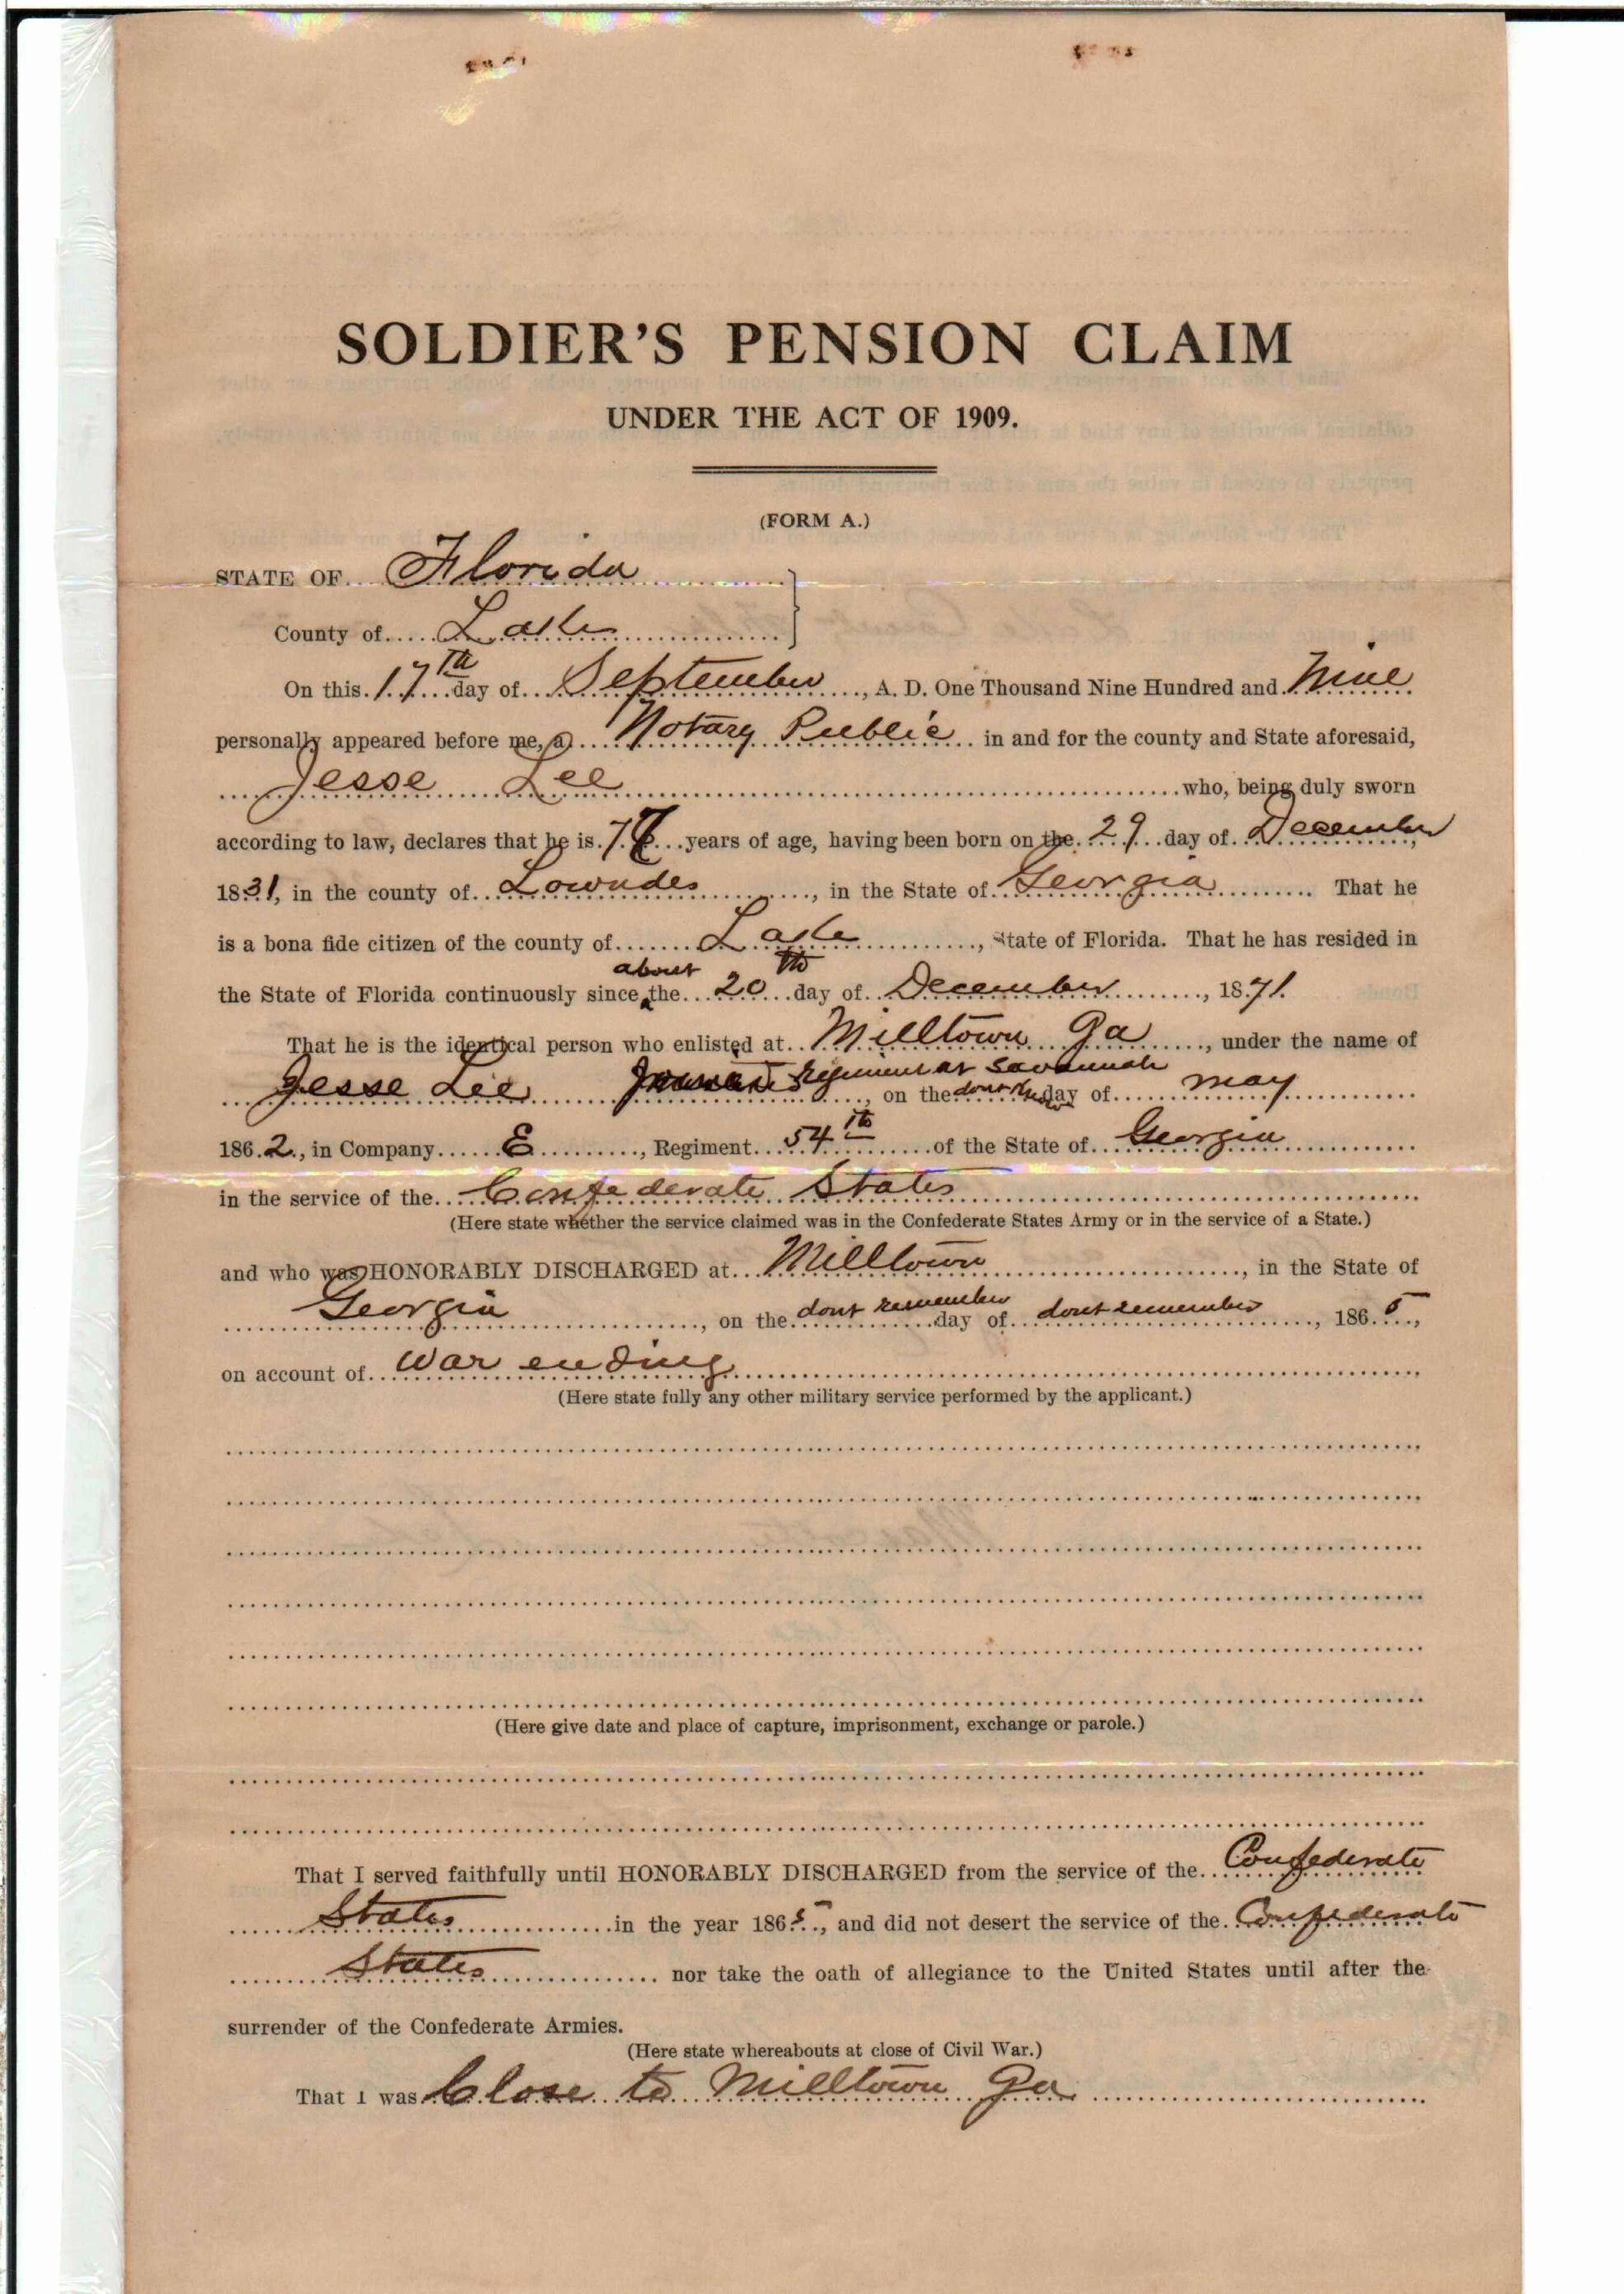 SOLDIER'S PENSION CLAIM
UNDER THE ACT OF 1909.
(FORM A.)
STATE OF Florida
County of Lake
On this 17th day of September, A. D. One Thousand Nine Hundred and Nine
personally appeared before me, a Notary Public in and for the county and State aforesaid,
Jesse Lee who, being duly sworn
according to law, declares that he is 77 years of age, having been born on the 29 day of December
1831, in the county of Lowndes, in the State of Georgia. That he
is a bona fide citizen of the county of Lake, State of Florida. That he has resided in
the State of Florida continuously since about the 20th day of December, 1871.
That he is the identical person who enlisted at Milltown Ga, under the name of
Jesse Lee Regiment at Savannah, on the dont know day of may
1862, in Company E, Regiment 54th of the State of Georgia
in the service of the Confederate States
(Here state whether the service claimed was in the Confederate States Army or in the service of a State.)
and who was HONORABLY DISCHARGED at Milltown, in the State of
Georgia, on the dont remember day of dont remember, 1865,
on account of War ending
(Here state fully any other military service performed by the applicant.)
(Here give date and place of capture, imprisonment, exchange or parole.)
That I served faithfully until HONORABLY DISCHARGED from the service of the Confederate
States in the year 1865, and did not desert the service of the Confederate
States nor take the oath of allegiance to the United States until after the
surrender of the Confederate Armies.
(Here state whereabouts at close of Civil War.)
That I was Close to Milltown Ga